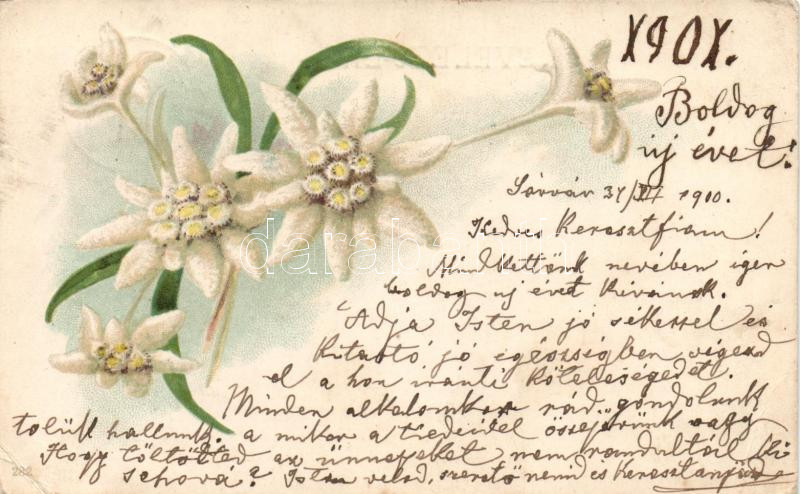 1901.
Boldog
uj évet!
Sárvár 31/XII 1900.
Kedves Keresztfiam!
Mindkettőnk nevében igen
boldog uj évet kivánok.
Adja Isten jó sikerrel és
kitartó jó egészségben végezd
el a hon iránti kötelességedet.
Minden alkalomkor rád gondolunk
a mikor a tieiddel összejövünk vagy
tolük hallunk.
Hogy töltötted az ünnepeket nem rándultál ki
sehová? Isten veled, szerető nénéd és keresztanyád
282